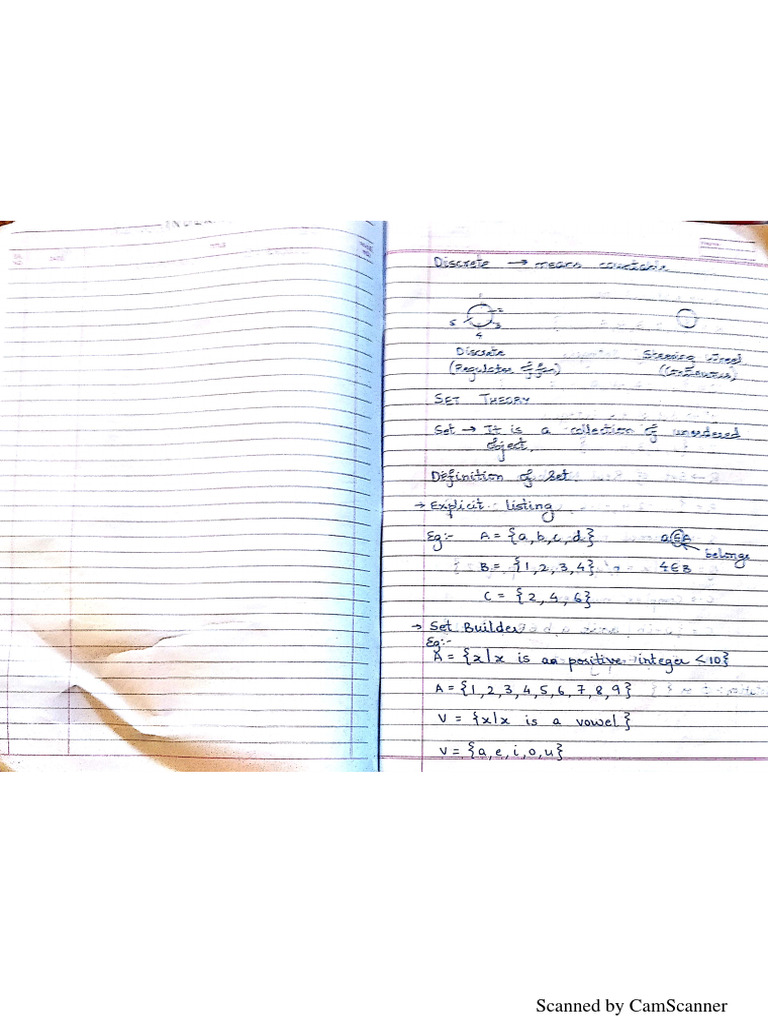 Discrete → means countable
1
2
5 3
4
Discrete Steering wheel
(Regulator of fan) (Continuous)
SET THEORY
Set → It is a collection of unordered
object.
Definition of Set
→ Explicit listing
Eg:- A = {a, b, c, d} a∈A
belongs
B = {1, 2, 3, 4} 4∈B
C = {2, 4, 6}
→ Set Builder
Eg:-
A = {x|x is an positive integer <10}
A = {1, 2, 3, 4, 5, 6, 7, 8, 9}
V = {x|x is a vowel}
V = {a, e, i, o, u}
Scanned by CamScanner